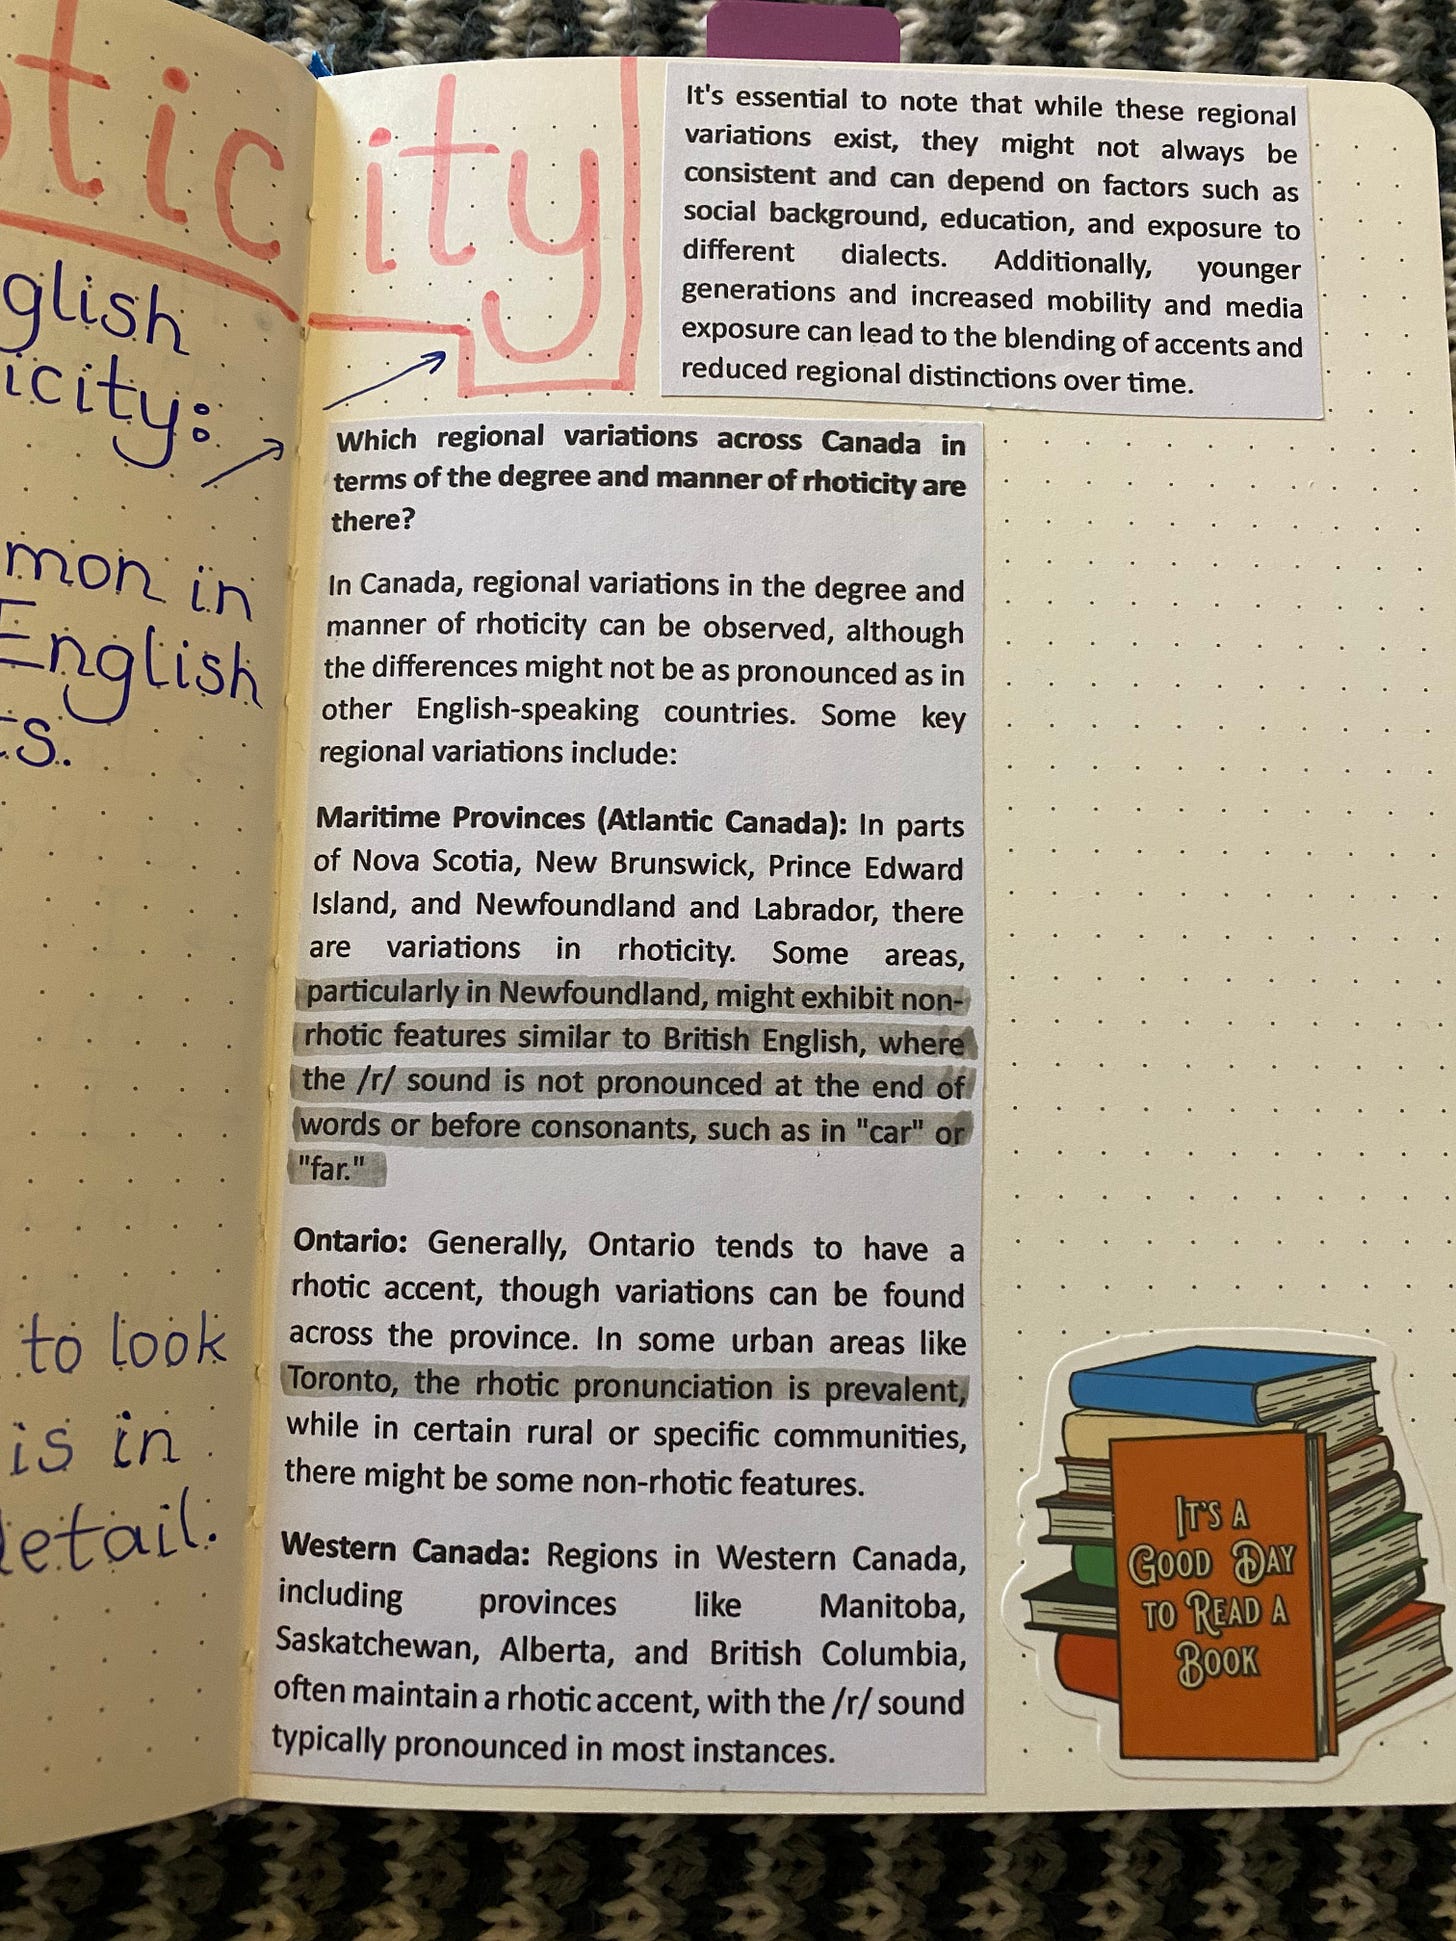 otic
glish
icity:
mon in
English
ts.
to look
is in
detail.
ity
It's essential to note that while these regional
variations exist, they might not always be
consistent and can depend on factors such as
social background, education, and exposure to
different dialects. Additionally, younger
generations and increased mobility and media
exposure can lead to the blending of accents and
reduced regional distinctions over time.
Which regional variations across Canada in
terms of the degree and manner of rhoticity are
there?
In Canada, regional variations in the degree and
manner of rhoticity can be observed, although
the differences might not be as pronounced as in
other English-speaking countries. Some key
regional variations include:
Maritime Provinces (Atlantic Canada): In parts
of Nova Scotia, New Brunswick, Prince Edward
Island, and Newfoundland and Labrador, there
are variations in rhoticity. Some areas,
particularly in Newfoundland, might exhibit non-
rhotic features similar to British English, where
the /r/ sound is not pronounced at the end of
words or before consonants, such as in "car" or
"far."
Ontario: Generally, Ontario tends to have a
rhotic accent, though variations can be found
across the province. In some urban areas like
Toronto, the rhotic pronunciation is prevalent,
while in certain rural or specific communities,
there might be some non-rhotic features.
Western Canada: Regions in Western Canada,
including provinces like Manitoba,
Saskatchewan, Alberta, and British Columbia,
often maintain a rhotic accent, with the /r/ sound
typically pronounced in most instances.
IT'S A
GOOD DAY
TO READ A
BOOK